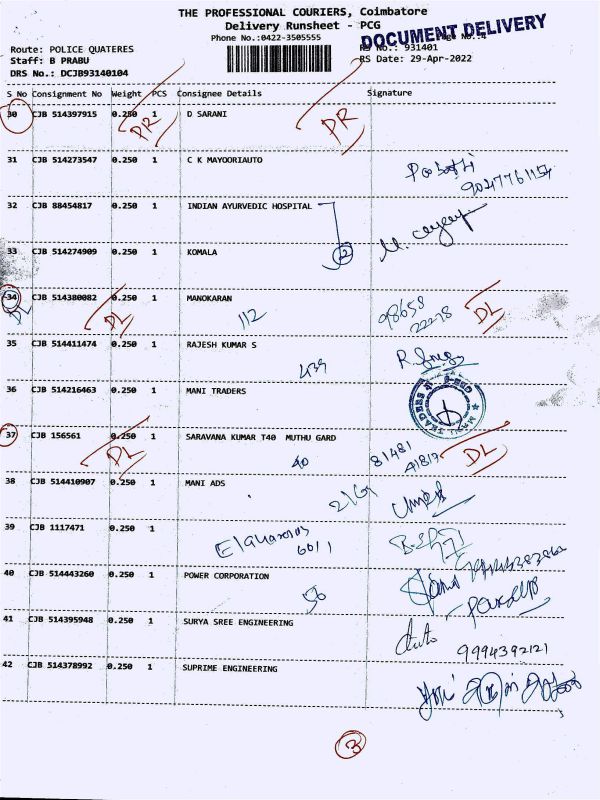 THE PROFESSIONAL COURIERS, Coimbatore
Delivery Runsheet - PCG
Phone No.:0422-3505555
DOCUMENT DELIVERY
Route: POLICE QUATERES
RS No.: 931401
Staff: B PRABU
RS Date: 29-Apr-2022
DRS No.: DCJB93140104
S No Consignment No Weight PCS Consignee Details Signature
30 CJB 514397915 0.250 1 D SARANI
PR PR
31 CJB 514273547 0.250 1 C K MAYOORIAUTO
9047761154
32 CJB 88454817 0.250 1 INDIAN AYURVEDIC HOSPITAL
2
33 CJB 514274909 0.250 1 KOMALA
34 CJB 514380082 0.250 1 MANOKARAN
DL DL 112 98658 22278 DL
35 CJB 514411474 0.250 1 RAJESH KUMAR S
439
36 CJB 514216463 0.250 1 MANI TRADERS
37 CJB 156561 0.250 1 SARAVANA KUMAR T40 MUTHU GARD
DL 40 81481 41817 DL
38 CJB 514410907 0.250 1 MANI ADS
39 CJB 1117471 0.250 1
6011
40 CJB 514443260 0.250 1 POWER CORPORATION
96
41 CJB 514395948 0.250 1 SURYA SREE ENGINEERING
Auto 9994392121
42 CJB 514378992 0.250 1 SUPRIME ENGINEERING
3